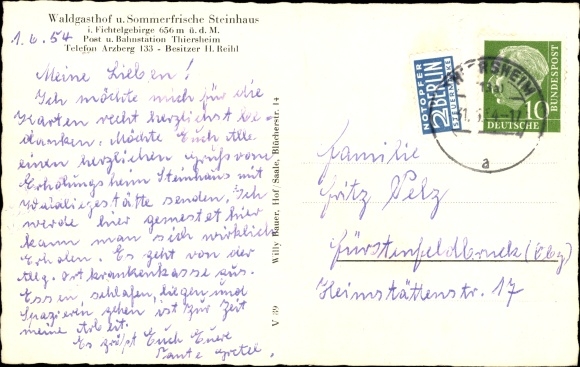 Waldgasthof u. Sommerfrische Steinhaus
i. Fichtelgebirge 656 m ü. d. M.
Post u. Bahnstation Thiersheim
Telefon Arzberg 133 - Besitzer H. Reihl
1.6.54
Meine Lieben!
Ich möchte mich für die
Karten recht herzlichst be-
danken. Möchte Euch Alle
einen herzlichen Gruß von
Erholungsheim Steinhaus mit
senden. Ich
werde hier gemestet hier
kann man sich wirklich
Erholen. Es geht von der
Allg. Ortskrankenkasse aus.
Essen, schlafen, liegen und
Spazieren gehen ist zur Zeit
meine Arbeit.
Es grüßt Euch Eure
Tante Gretel.
V 39 Willy Bauer, Hof/Saale, Blücherstr. 14
NOTOPFER
2 BERLIN
STEUERMARKE
THIERSHEIM
a
10
DEUTSCHE
BUNDESPOST
Familie
Fritz Pelz
Fürstenfeldbruck (Obg)
Heimstättenstr. 17